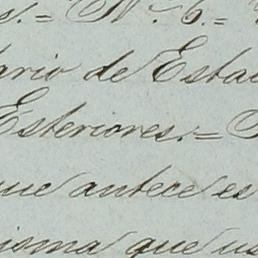 s.= N.º 6.=
tario de Estad
Esteriores.=
que antece es
isma que us